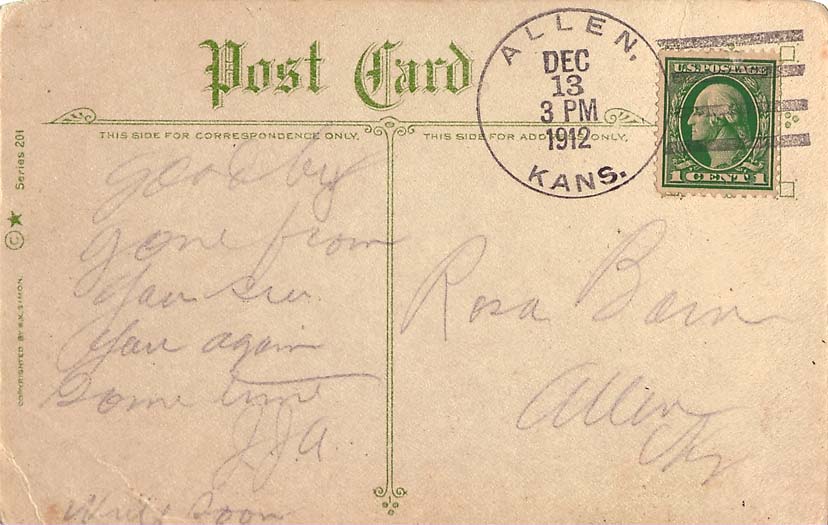 Post Card
ALLEN,
DEC
13
3 PM
1912
KANS.
U.S. POSTAGE
1 CENT 1
THIS SIDE FOR CORRESPONDENCE ONLY.
THIS SIDE FOR ADD ONLY.
Series 201
COPYRIGHTED BY S.K. SIMON.
good by
gone from
you see
you again
some time
J.J.A.
Write Soon
Rosa
Allen